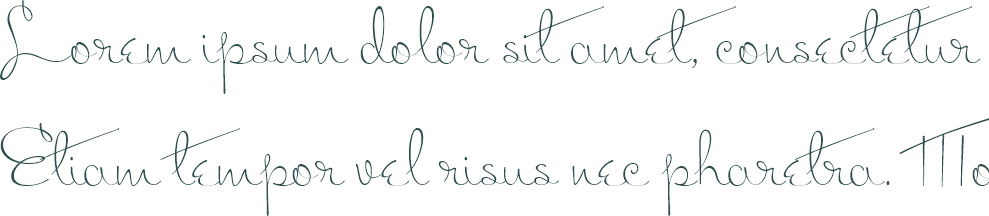 Lorem ipsum dolor sit amet, consectetur
Etiam tempor vel risus nec pharetra. Mo